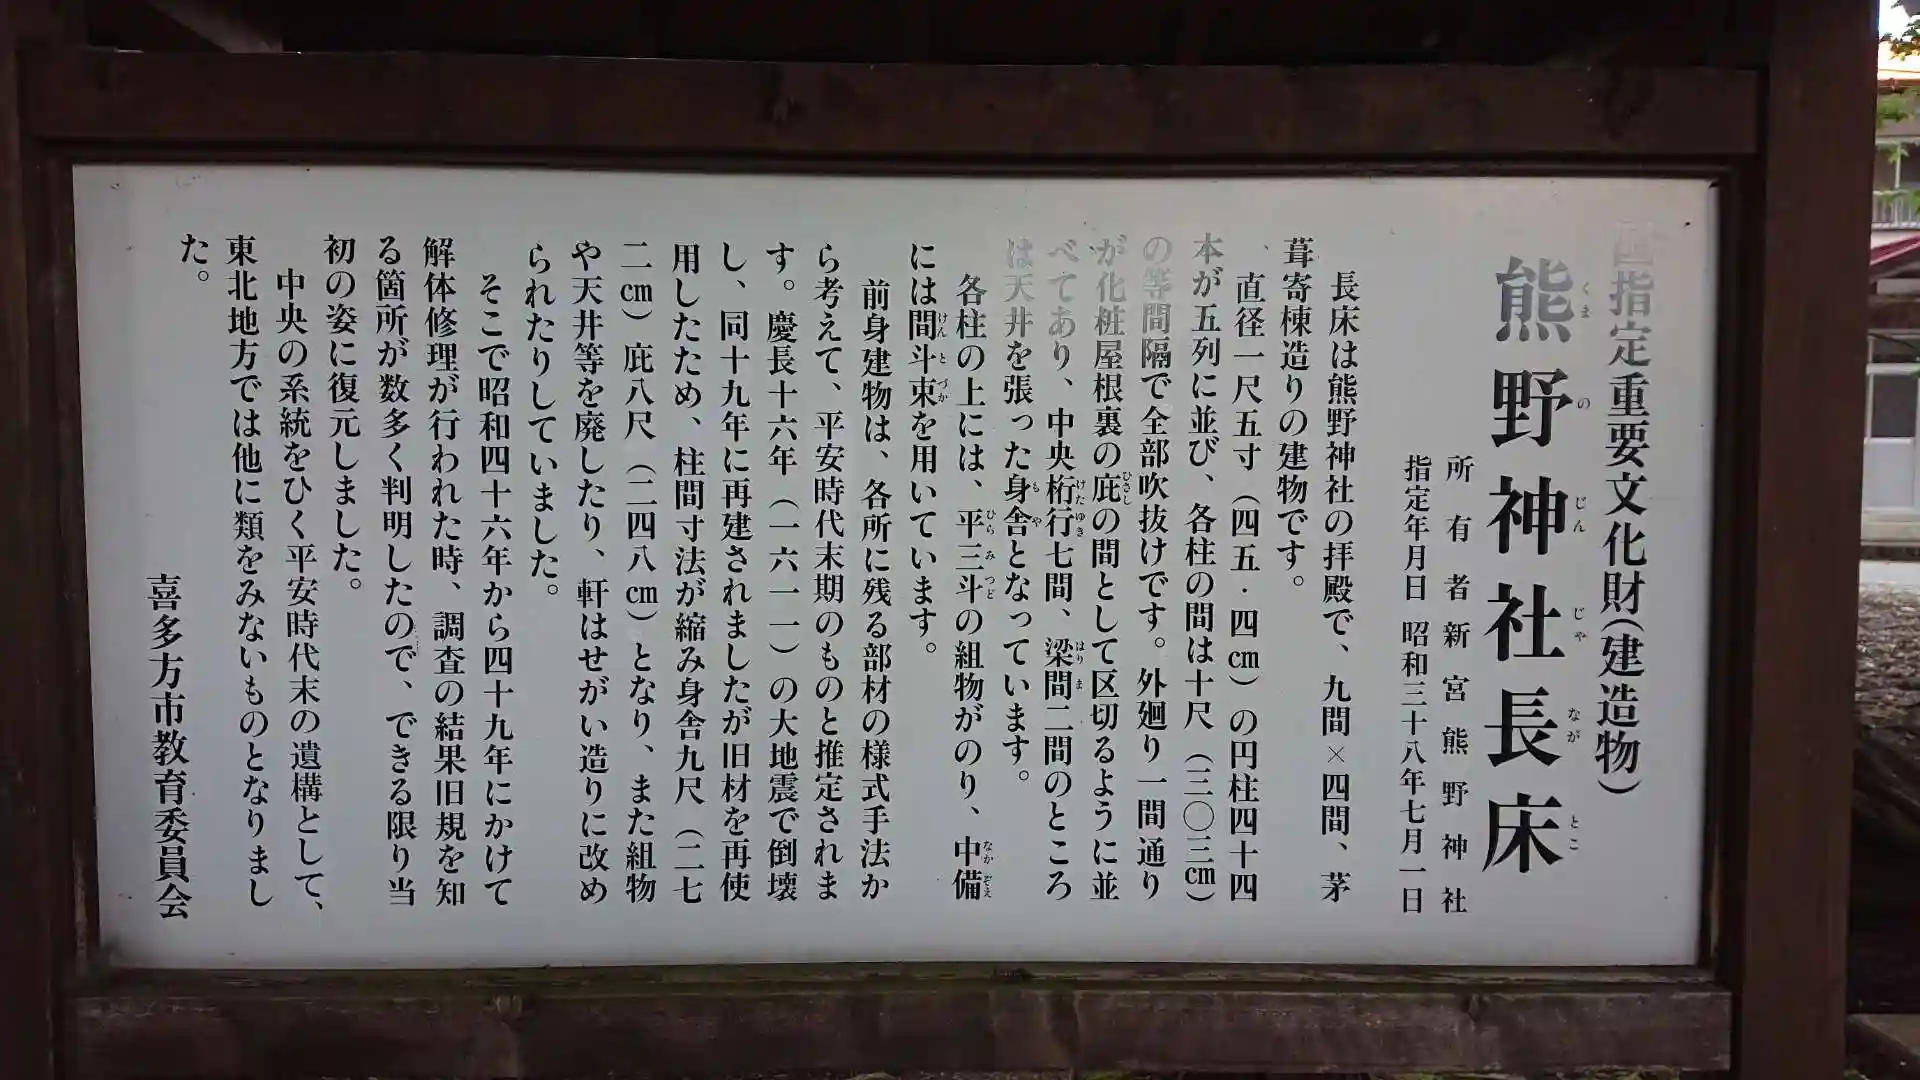 国指定重要文化財(建造物)
熊野神社長床
くまのじんじゃながとこ
所有者新宮熊野神社
指定年月日 昭和三十八年七月一日
長床は熊野神社の拝殿で、九間×四間、茅
葺寄棟造りの建物です。
直径一尺五寸（四五・四㎝）の円柱四十四
本が五列に並び、各柱の間は十尺（三〇三㎝）
の等間隔で全部吹抜けです。外廻り一間通り
が化粧屋根裏の庇の間として区切るように並
べてあり、中央桁行七間、梁間二間のところ
は天井を張った身舎となっています。
各柱の上には、平三斗の組物がのり、中備
には間斗束を用いています。
前身建物は、各所に残る部材の様式手法か
ら考えて、平安時代末期のものと推定されま
す。慶長十六年（一六一一）の大地震で倒壊
し、同十九年に再建されましたが旧材を再使
用したため、柱間寸法が縮み身舎九尺（二七
二㎝）庇八尺（二四八㎝）となり、また組物
や天井等を廃したり、軒はせがい造りに改め
られたりしていました。
そこで昭和四十六年から四十九年にかけて
解体修理が行われた時、調査の結果旧規を知
る箇所が数多く判明したので、できる限り当
初の姿に復元しました。
中央の系統をひく平安時代末の遺構として、
東北地方では他に類をみないものとなりまし
た。
喜多方市教育委員会